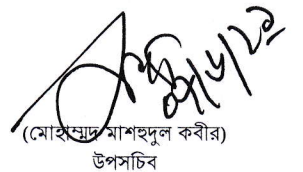 (মোহাম্মদ মাশহুদুল কবীর)
উপসচিব